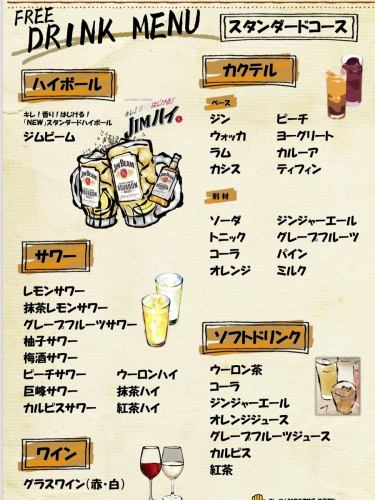 FREE
DRINK MENU
スタンダードコース
ハイボール
キレ!香り!はじける!
「NEW」スタンダードハイボール
ジムビーム
JIMハイ
JIM BEAM
BOURBON
サワー
レモンサワー
抹茶レモンサワー
グレープフルーツサワー
柚子サワー
梅酒サワー
ピーチサワー ウーロンハイ
巨峰サワー 抹茶ハイ
カルピスサワー 紅茶ハイ
ワイン
グラスワイン(赤・白)
カクテル
ベース
ジン ピーチ
ウォッカ ヨーグリート
ラム カルーア
カシス ティフィン
割材
ソーダ ジンジャーエール
トニック グレープフルーツ
コーラ パイン
オレンジ ミルク
ソフトドリンク
ウーロン茶
コーラ
ジンジャーエール
オレンジジュース
グレープフルーツジュース
カルピス
紅茶